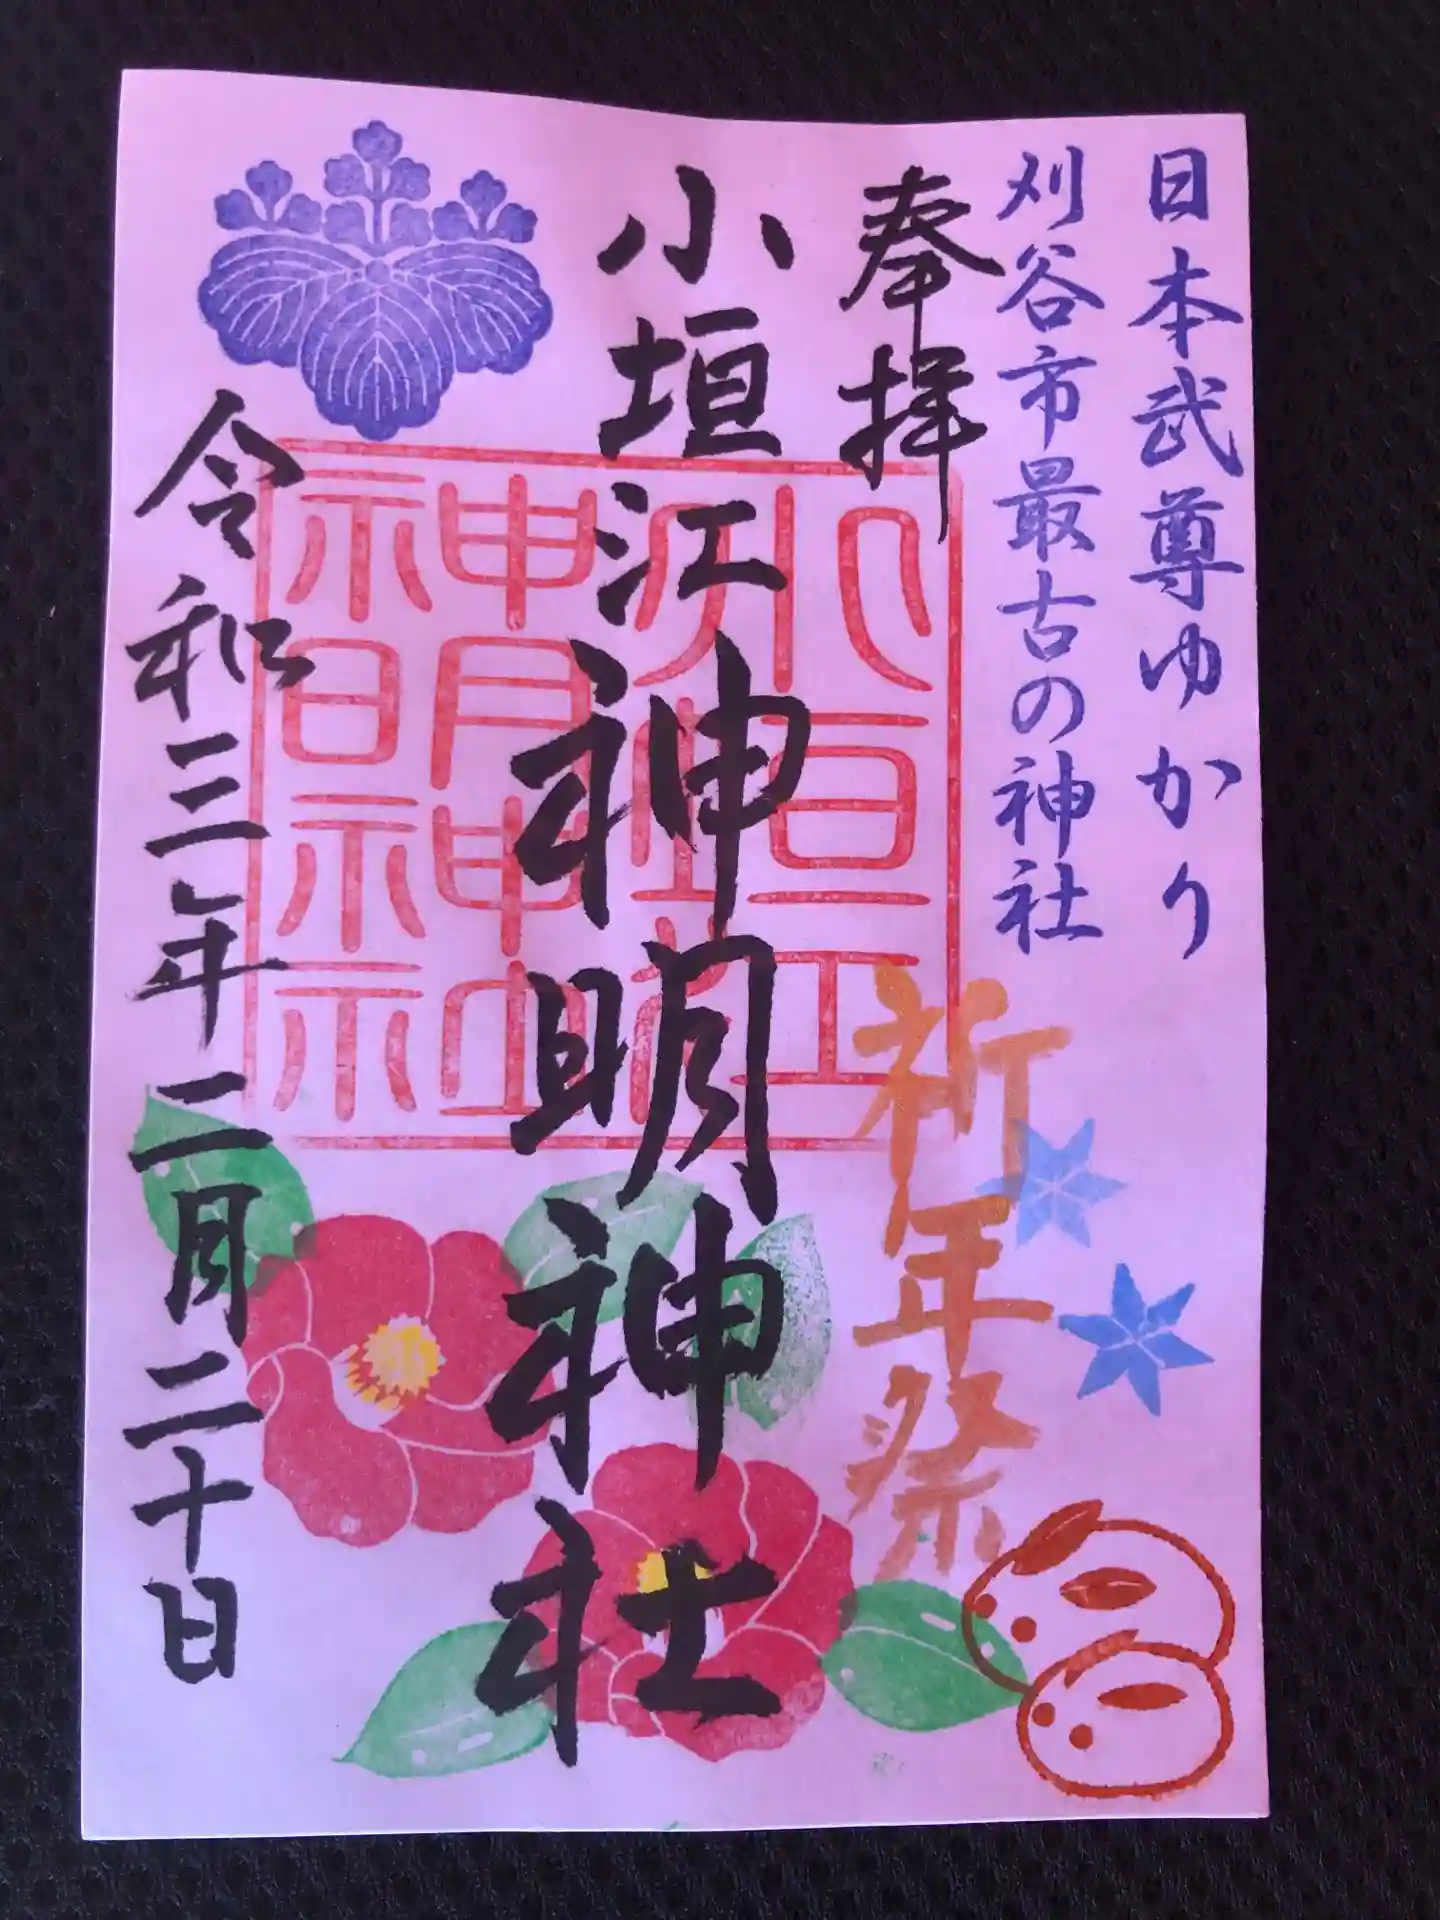 日本武尊ゆかり
刈谷市最古の神社
奉拝
祈年祭
小垣江神明神社
小垣江
神明神社
令和三年二月二十日